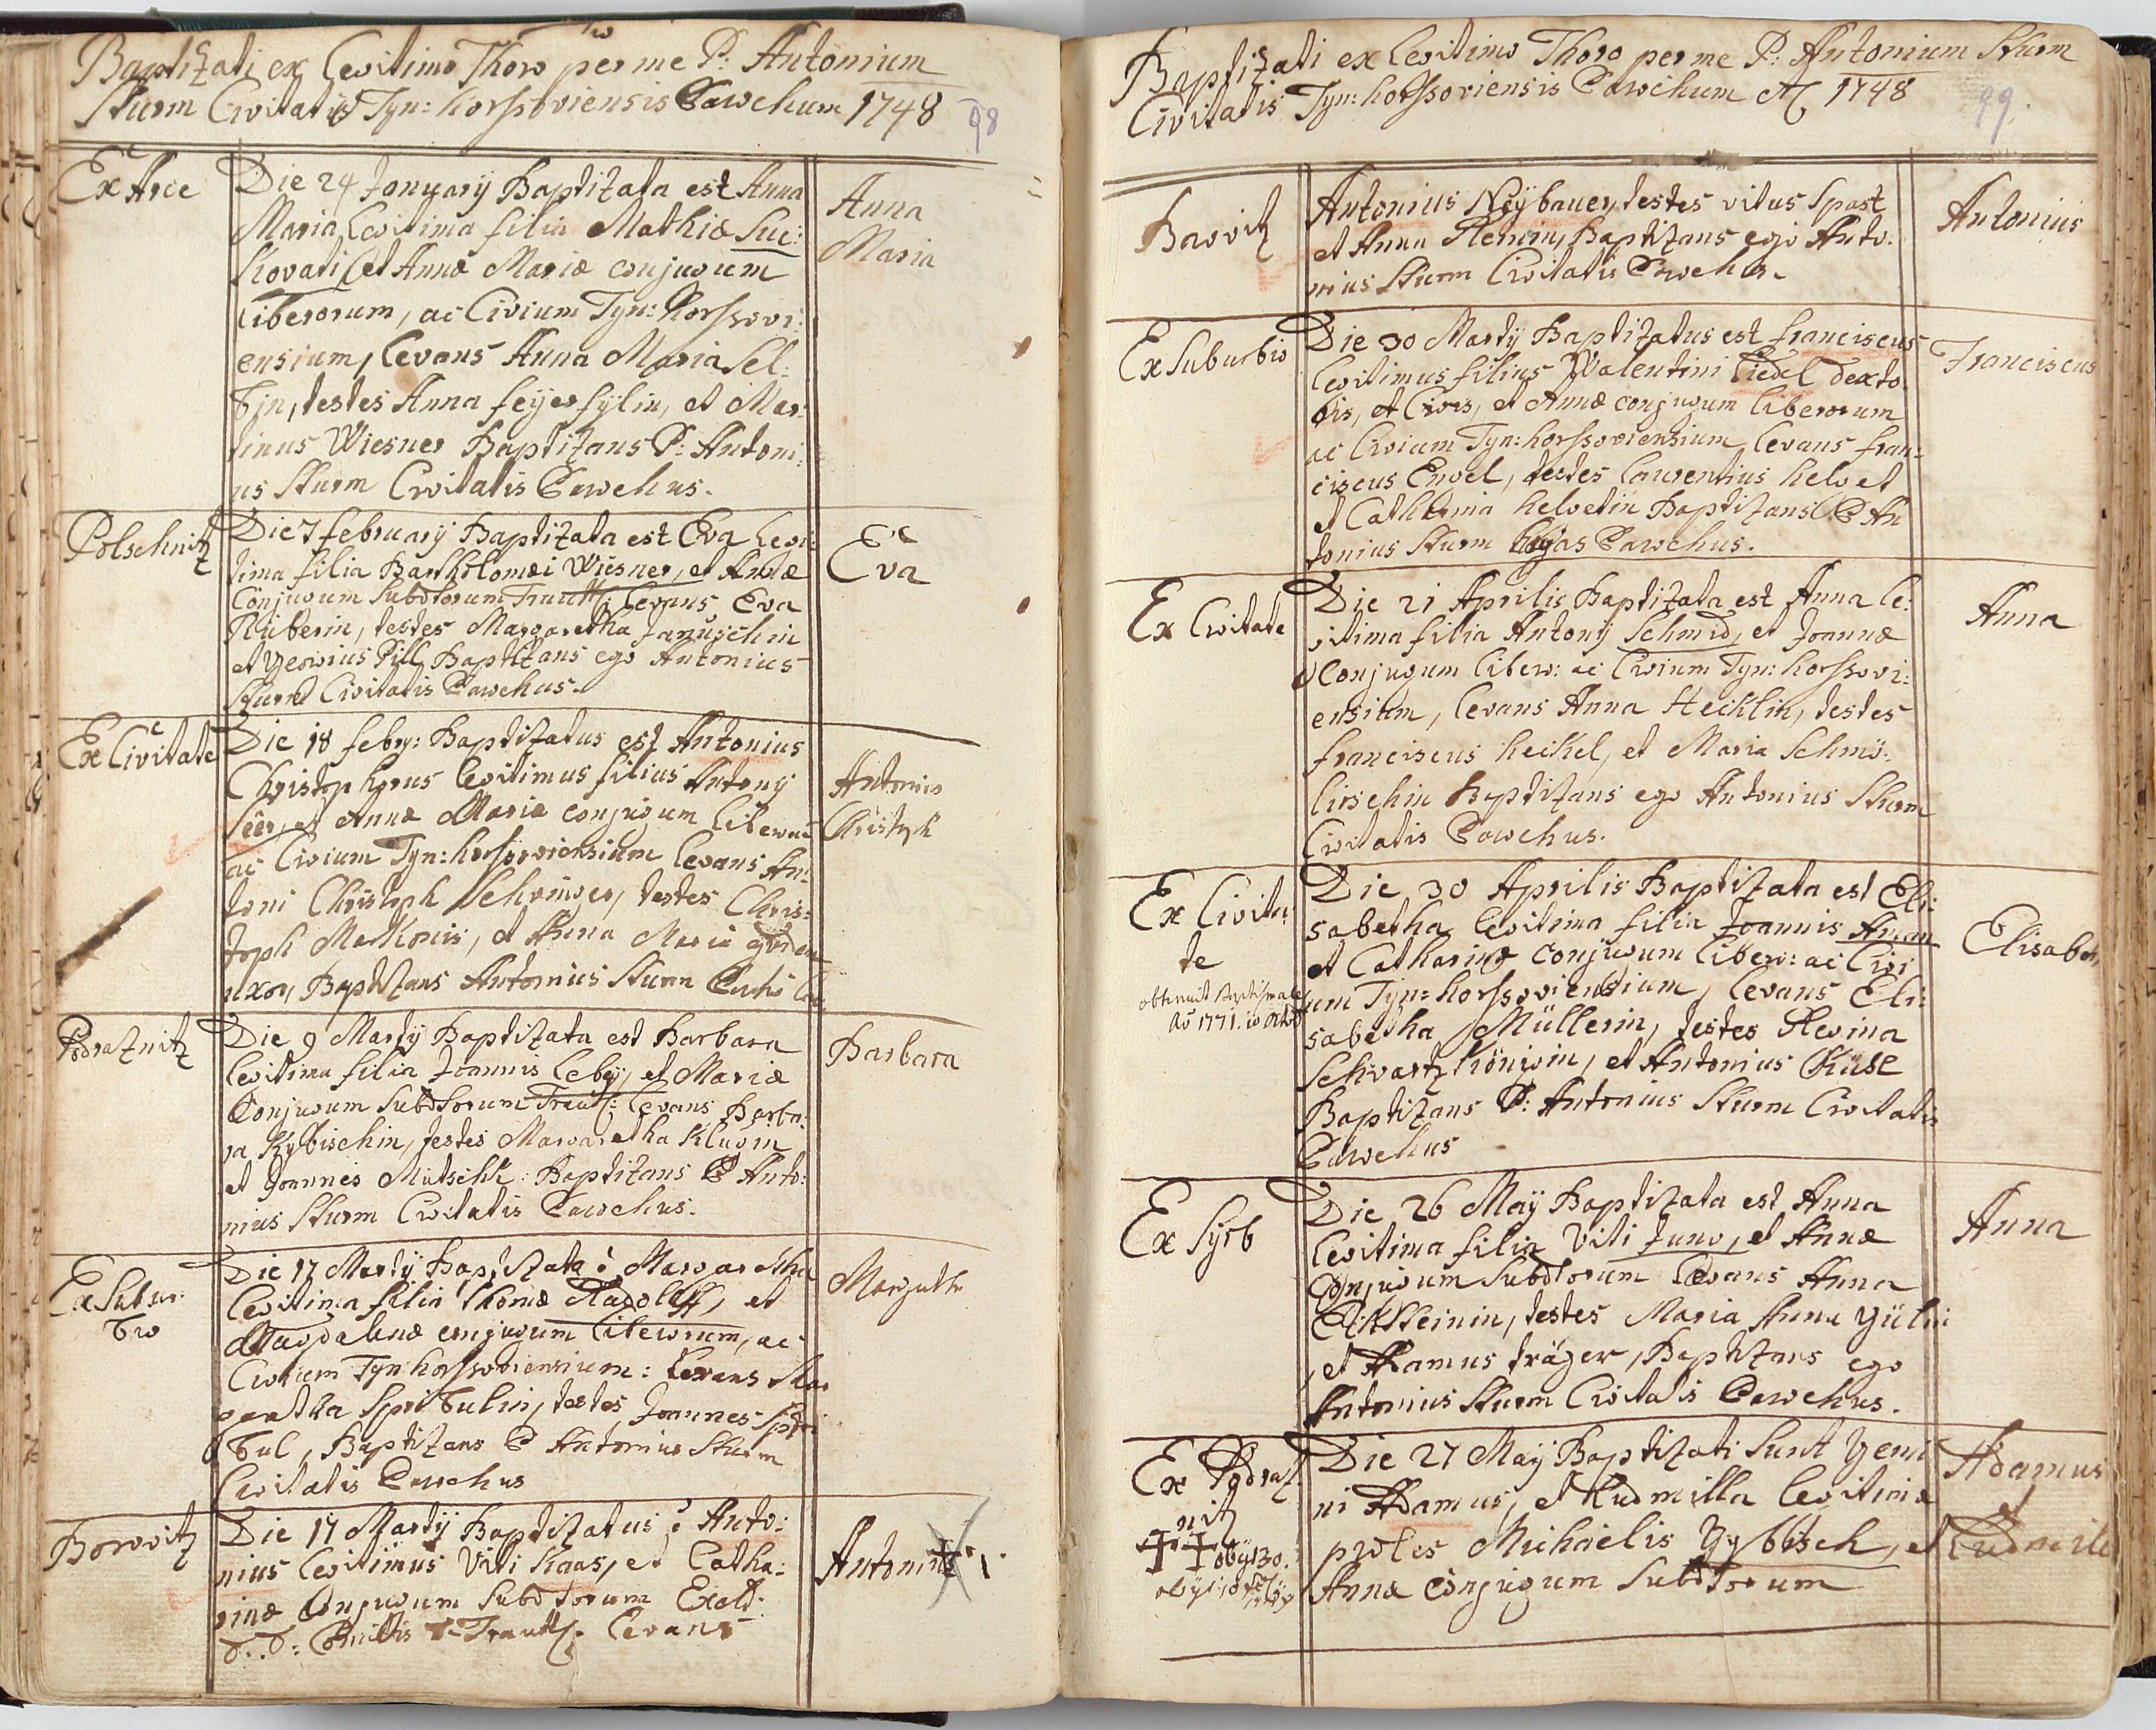 Baptizati ex Legitimo Thoro per me P: Antonium
Sturm Civitatis Tyn: horssoviensis Parochum 1748
98
Ex Arce
Die 24 January Baptizata est Anna
Maria, Legitima filia Mathiæ Suc:
Kovati, et Annæ Mariæ conjugum
Liberorum, ac Civium Tyn: horssovi:
ensium, Levans Anna Maria Sel:
bin, testes Anna feyersylin, et Mar:
tinus Wiesner Baptizans P: Antoni:
us Sturm Civitatis Parochus.
Anna
Maria
Polschnitz
Die 7 february Baptizata est Eva Legi:
tima filia Bartholomæi Wiesner, et Annæ
Conjugum Subditorum Trautt: Levans Eva
Ruberin, testes Margaretha Januschin
et Georgius Pill Baptizans ego Antonius
Sturm Civitatis Parochus.
Eva
Ex Civitate
Die 18 febry: Baptizatus est Antonius
Christophorus legitimus filius Antony
Seer, et Annæ Mariæ conjugum liberorum
ac Civium Tyn: horssoviensium Levans An:
toni Christoph Schringer, testes Chris:
toph Markonis, et Anna Maria
uxor, Baptizans Antonius Sturm
Antonius
Christoph
Podraznitz
Die 9 Marty Baptizata est Barbara
Legitima filia Joannis Leby, et Mariæ
Conjugum Subditorum Trautt: Levans Barba:
ra Kybischin, testes Margaretha Klugin
et Joannes Mutschk: Baptizans P Anto:
nius Sturm Civitatis Parochus.
Barbara
Ex Subur:
bio
Die 17 Marty Baptizata e Margaretha
Legitima filia Thomæ Radolff, et
Magdalenæ conjugum liberorum, ac
Civium Tyn horssoviensium: Levans Mar
garetha Spribulin, testes Joannes Spri
bul, Baptizans P Antonius Sturm
Civitatis Parochus
Margareth
Borovitz
Die 17 Marty Baptizatus e Anto:
nius legitimus Viti Kaas, et Catha:
rinæ Conjugum Subditorum Excel:
D: D: Comitis de Trautt: Levans
Antonius
Baptizati ex Legitimo Thoro per me P: Antonium Sturm
Civitatis Tyn: horssoviensis Parochum A 1748
99.
Borvitz
Antonius Neybauer, testes vitus Spast
et Anna Plenin, Baptizans ego Anto:
nius Sturm Civitatis Parochus.
Antonius
Ex Suburbio
Die 30 Marty Baptizatus est franciscus
Legitimus filius Walentini Liedel Texto:
ris, et Civis, et Annæ conjugum liberorum
ac Civium Tyn: horssoviensium, Levans fran:
ciscus Engel, testes Laurentius helvet
et Catharina helvetin Baptizans P An
tonius Sturm hujas Parochus.
Franciscus
Ex Civitate
Die 21 Aprilis Baptizata est Anna Le:
gitima filia Antony Schmid, et Joannæ
Conjugum libero: ac Civium Tyn: horssovi:
ensium, Levans Anna Hecklin, testes
franciscus heckel, et Maria Schmö:
lirschin Baptizans ego Antonius Sturm
Civitatis Parochus.
Anna
Ex Civita
te
obtinuit Baptismale
Aõ 1771. 10
Die 30 Aprilis Baptizata est Eli:
sabetha legitima filia Joannis Aman
et Catharinæ conjugum libero: ac Civi
um Tyn: horssoviensium, Levans Eli:
sabetha Müllerin, testes Regina
Schvartz Königin, et Antonius Küsl
Baptizans P: Antonius Sturm Civitatis
Parochus
Elisabeth
Ex Syrb
Die 26 May Baptizata est Anna
Legitima filia Viti Jung, et Annæ
Conjugum Subditorum Levans Anna
Dittsteinin, testes Maria Anna Yülni
, et Adamus träger, Baptizans ego
Antonius Sturm Civitatis Parochus.
Anna
Ex Podraz
nitz
Die 27 May Baptizati Sunt Gemi
ni Adamus, et Ludmilla legitimæ
proles Michaelis Gybbisch, et
Annæ conjugum Subditorum
Adamus
et
Ludmila